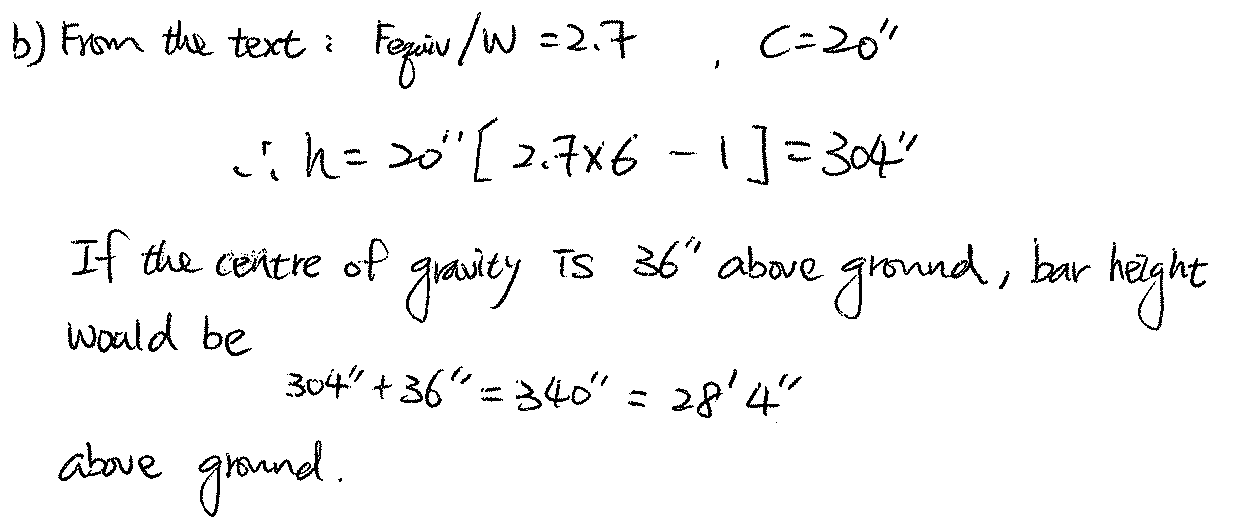 b) From the text : Fequiv/W = 2.7 , C = 20"
∴ h = 20" [ 2.7×6 - 1 ] = 304"
If the centre of gravity is 36" above ground, bar height
would be
304" + 36" = 340" = 28' 4"
above ground.